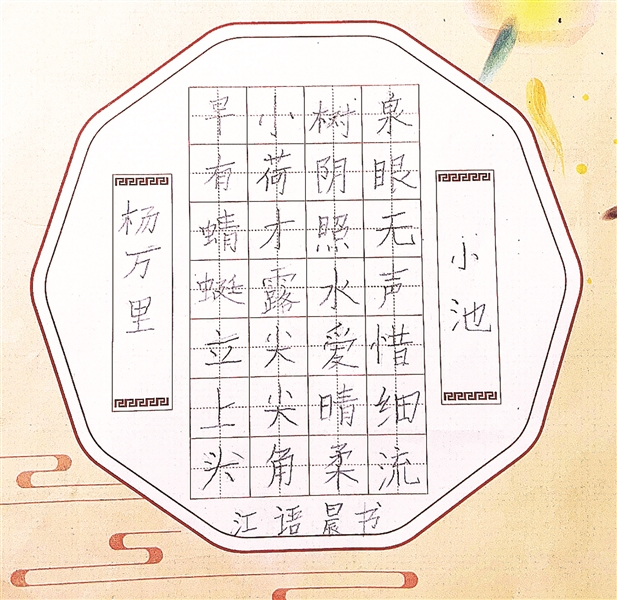 小池
泉眼无声惜细流
树阴照水爱晴柔
小荷才露尖尖角
早有蜻蜓立上头
杨万里
江语晨书